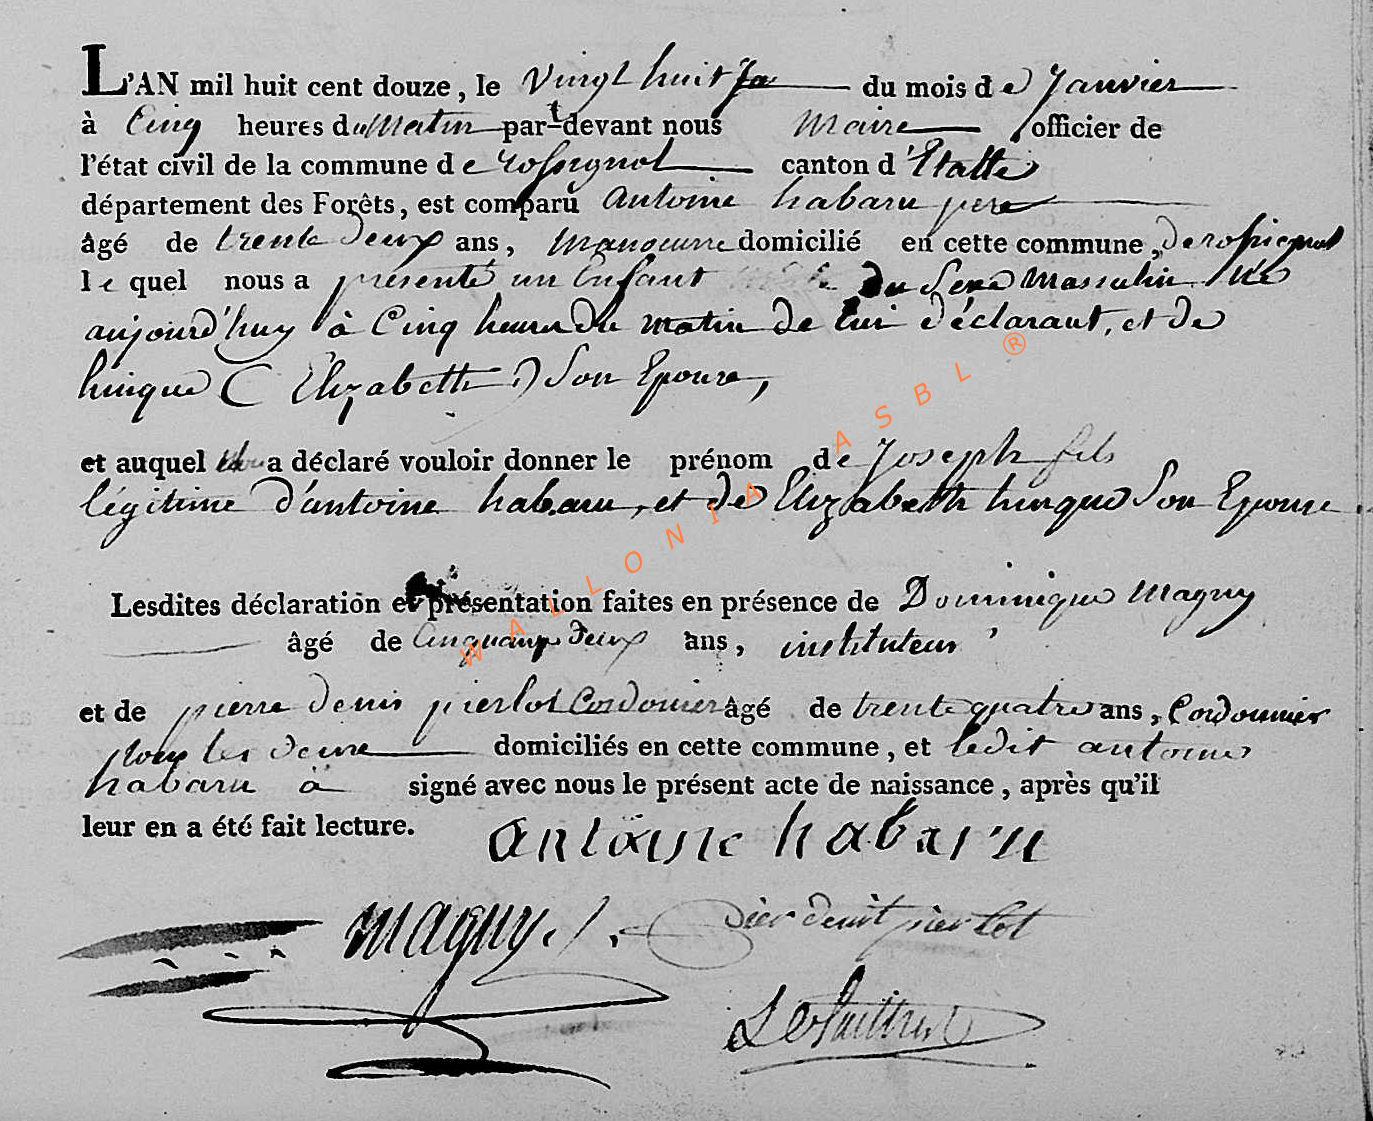 L'AN mil huit cent douze, le vingt huit du mois de Janvier
à Cinq heures du Matin par-devant nous Maire officier de
l'état civil de la commune de rossignol canton d'Etalle
département des Forêts, est comparu antoine habaru pere
âgé de trente deux ans, manoeuvre domicilié en cette commune, de rossignol
le quel nous a présenté un Enfant du Sexe Masculin Né
aujourd'huy à Cinq heures du matin de lui déclarant, et de
hinque ( Elizabeth ) Son Epouse,
et auquel a déclaré vouloir donner le prénom de Joseph fils
légitime d'antoine habaru, et de Elizabeth hinque Son Epouse
Lesdites déclaration et présentation faites en présence de Dominique Magny
âgé de Cinquante deux ans, instituteur
et de pierre denis pierlot Cordonier âgé de trente quatre ans, Cordonnier
tous les deux domiciliés en cette commune, et ledit antoine
habaru à signé avec nous le présent acte de naissance, après qu'il
leur en a été fait lecture.
antoine habaru
Magny
pier denit pierlot
WALLONIA ASBL ®